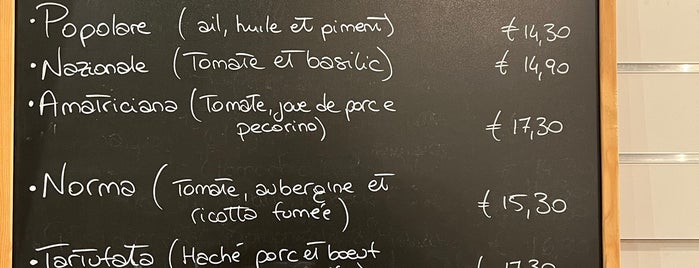 • Popolare (ail, huile et piment) € 14,30
• Nazionale (Tomate et basilic) € 14,90
• Amatriciana (Tomate, joue de porc e
pecorino) € 17,30
• Norma (Tomate, aubergine et
ricotta fumée) € 15,30
• Tartufata (Haché porc et boeuf
€ 17,30